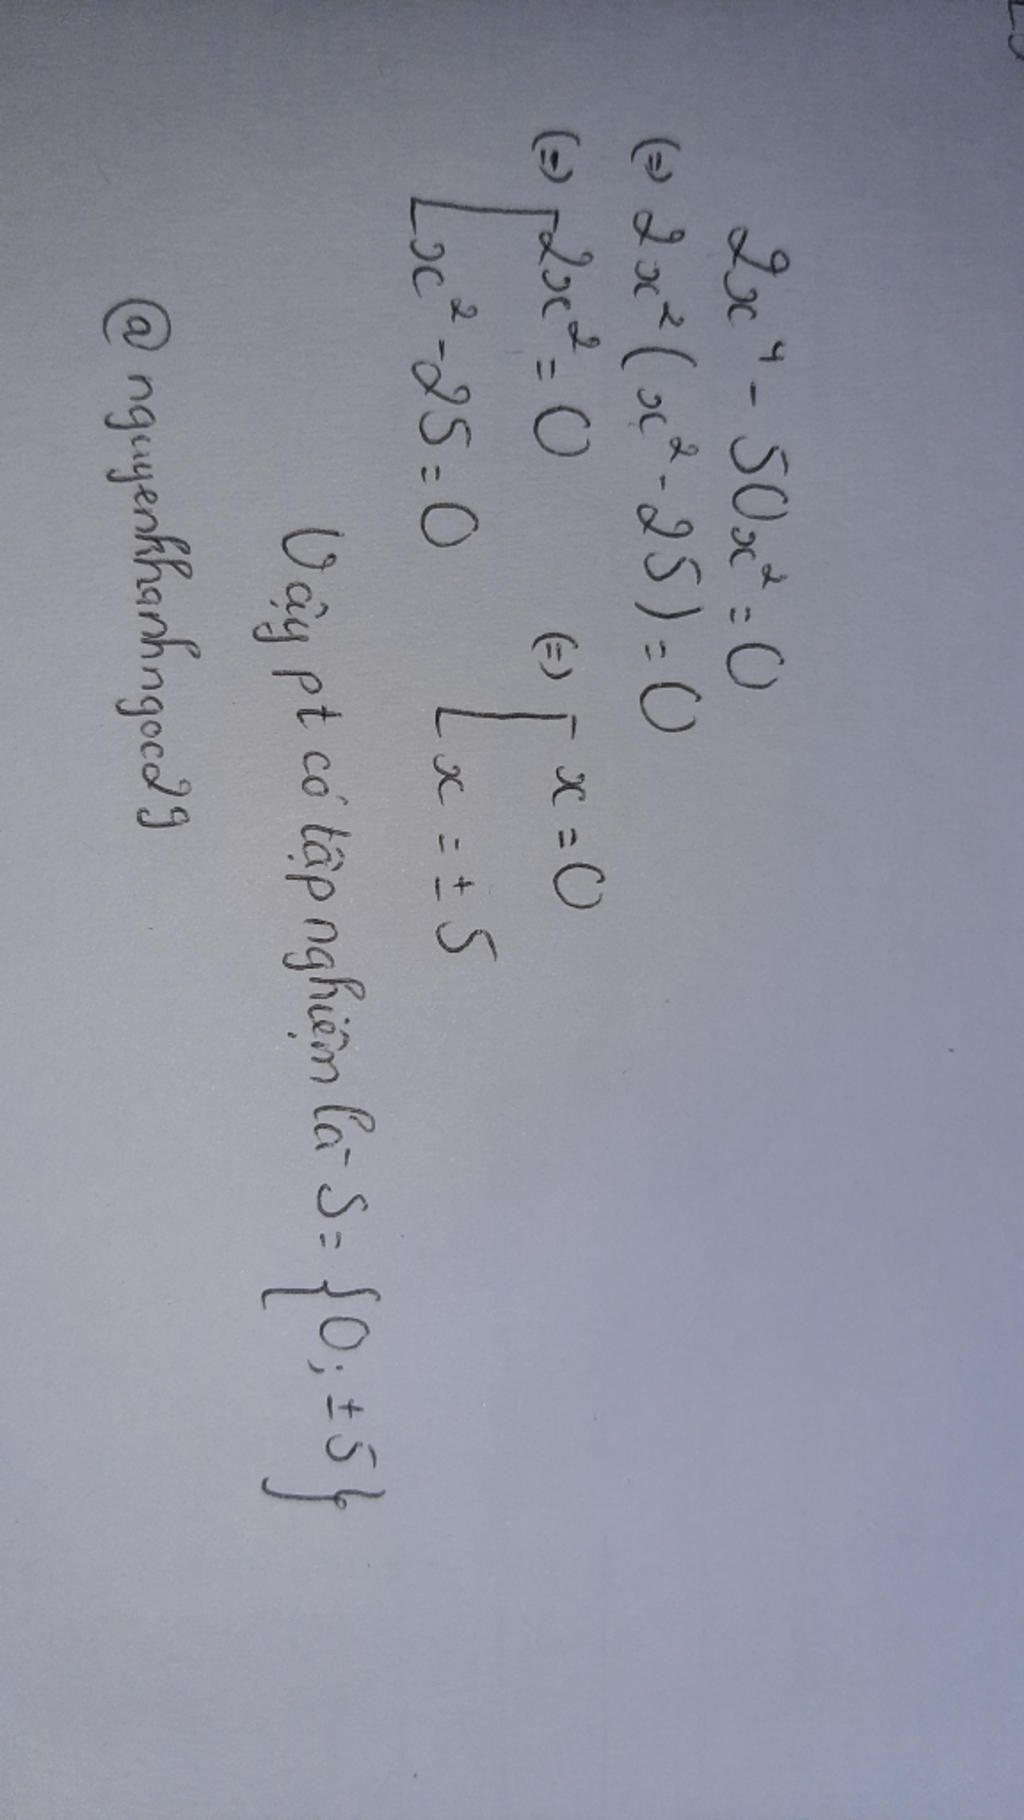 2x⁴ - 50x² = 0
(=) 2x² (x² - 25) = 0
(=) [ 2x² = 0 (=) [ x = 0
[ x² - 25 = 0 [ x = ± 5
Vậy pt có tập nghiệm là S = {0; ± 5}
@nguyenkhanhngoc29